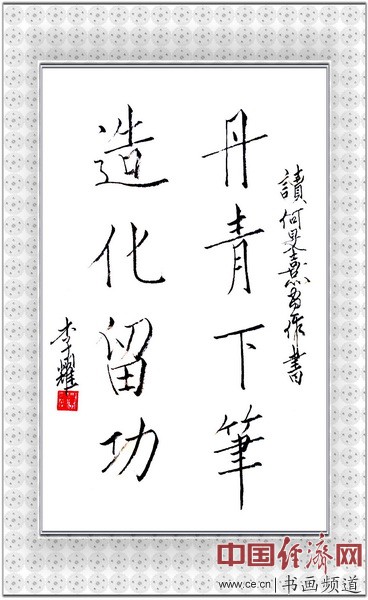 讀何旻熹作書
丹青下筆
造化留功
李耀
中国经济网
www.ce.cn|书画频道